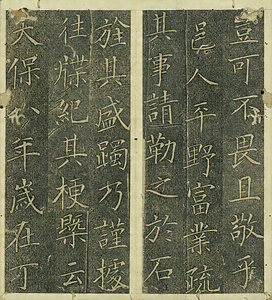 豈可不畏且敬乎
邑人平野富業疏
其事請勒之於石
旌其盛躅乃謹據
往牒紀其梗槩云
天保八年歲在丁